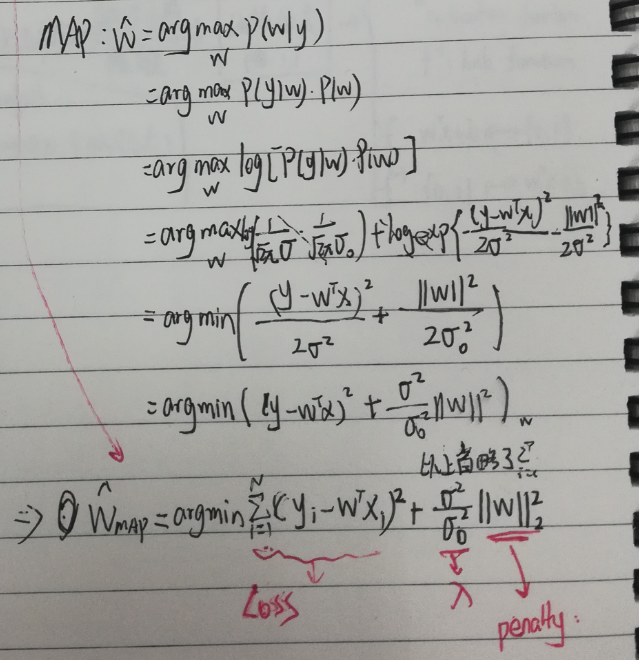 MAP: ŵ = arg max_w P(w|y)
= arg max_w P(y|w)·P(w)
= arg max_w log[P(y|w)·P(w)]
= arg max_w log(1/(√2π σ) · 1/(√2π σ₀)) + log exp{-(y-wᵀxᵢ)²/2σ² - ||w||²/2σ²}
= arg min((y-wᵀx)²/2σ² + ||w||²/2σ₀²)
= arg min((y-wᵀx)² + σ²/σ₀² ||w||²)_w
以上省略了 Σᵢ₌₁ᴺ
⇒ ① ŵ_MAP = arg min Σᵢ₌₁ᴺ(yᵢ-wᵀxᵢ)² + σ²/σ₀² ||w||₂²
Loss λ penalty.